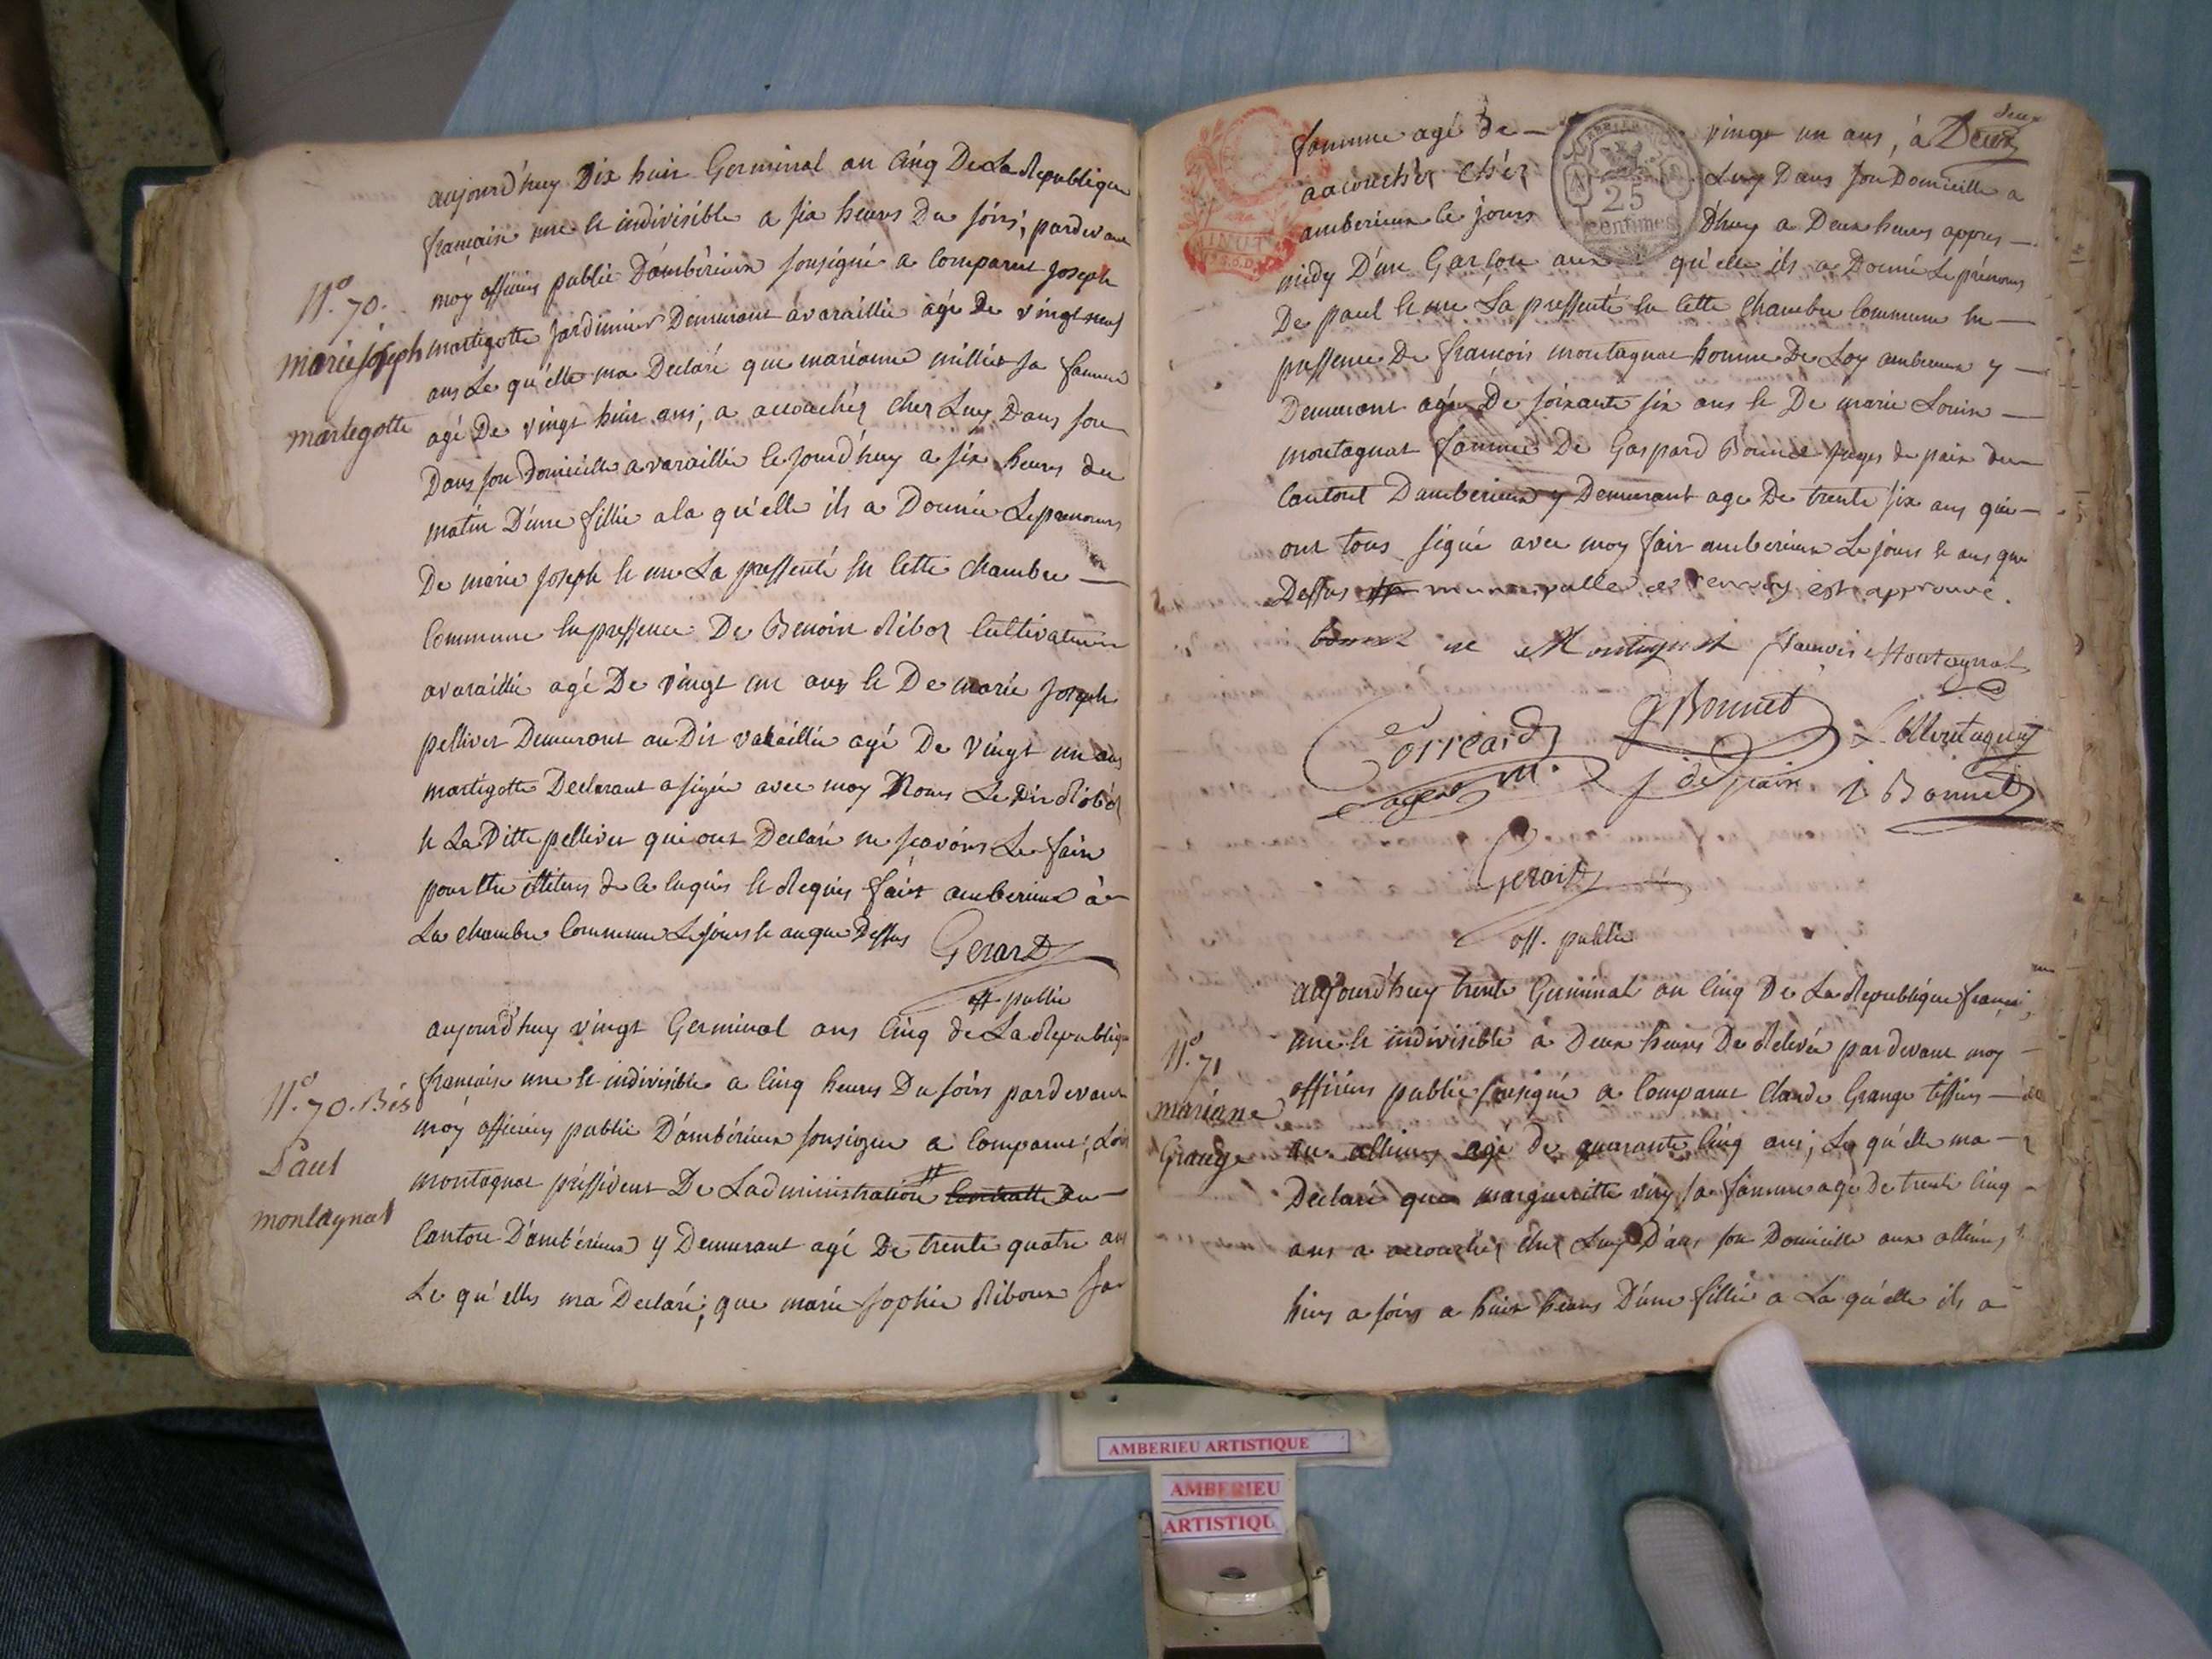 aujourd'huy Dix huit Germinal an cinq De La Republique
française une et indivisible a six heures Du soirs, pardevant
moy officiers public D'ambérieux sousigné a comparut Joseph
N.° 70.
marie joseph
martegotte
martegotte jardinnier Demeurant a varaillie agé De vingt neuf
ans Le qu'elle ma Declaré que marianne milliet sa femme
agé De vingt huit ans, a accouchéz cher Luy Dans son
Dans son Domicille a varaillie le jourd'huy a six heures du
matin D'une fillie a la qu'elle ils a Donnée Le prenoms
De marie Joseph et me La pressenté en cette chambre —
commune en pressence De Benoit Ribot cultivateur
a varaillie agé De vingt un ans et De marie Joseph
pelliver Demurant au Dit varaillie agé De vingt un ans
martigotte Declarant a signé avec moy Nons Le Dit Ribot
et La Ditte pelliver qui ont Declaré ne scavoirs Le faire
pour etre de ce enquis et Requis fait amberieux à
La chambre commune Le jours et an que Dessus
Gerard
off public
aujourd'huy vingt Germinal ans cinq de La Republiq
N.° 70. Bis
Paul
montagnat
française une et indivisible a cinq heures Du soirs pardevant
moy officiers public D'ambérieux sousigné a comparut,
montagnat préssident De L'administration centralle Du —
canton D'ambérieux y Demurant agé De trente quatre ans
Le qu'elles ma Declaré, que marie sophie Riboux sa
femme agé de — vingt un ans, à Deux
deux
accouchéz chéz Luy Dans son Domicille a
AMBERIEUX
25
centimes
amberieux le jours D'huy a Deux heures appres —
midy D'un Garçon aux qu'elle ils a Donné Le prénoms
De paul et me La pressenté en cette chambre commune en —
pressence De françois montagnat homme De Loy amberieux y —
Demurant agé De soixante six ans et De marie Louise —
montagnat femme De Gaspard Bonnet juges de paix du —
cantont D'amberieux y Demurant age De trente six ans qui —
ont tous signé avec moy fait amberieux Le jours et ans que
Dessus municipalle ce renvoy est approuvé.
bonnet né Montagnat francois Montagnat
Correard GBonnet L. Montagnat
agent m. j de paix j Bonnet
Gerard
off. public
aujourd'huy trente Germinal an cinq De La Republique françai
N.° 71
mariane
Grange
une et indivisible à Deux heures De Relevée pardevant moy —
officiers public sousigné a comparut Claude Grange tissieur —
au allimes agé de quarante cinq ans, Le qu'elle ma —
Declaré que margueritte sa femme age de trente cinq —
ans a accouchéz chez Luy Dans son Domicille aux allimes
hiers a soirs a huit heures D'une fillie a La qu'elle ils a
AMBERIEU ARTISTIQUE
AMBERIEU
ARTISTIQU